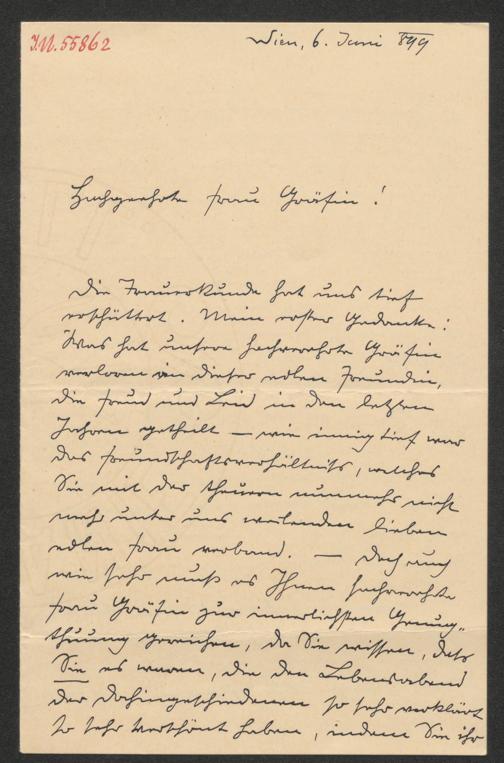 I.N. 55862
Wien, 6. Juni 899
Hochgeehrte Frau Gräfin!
Die Trauerkunde hat uns tief
erschüttert. Mein erster Gedanke:
Was hat unsere hochverehrte Gräfin
verloren an dieser edlen Freundin,
die Freud und Leid in den letzten
Jahren getheilt — wie innig tief war
das Freundschaftsverhältniß, welches
Sie mit der theuren nunmehr nicht
mehr unter uns weilenden lieben
edlen Frau verband. — Doch auch
wie sehr muß es Ihnen hochverehrte
Frau Gräfin zur innerlichsten Genug„
thuung gereichen, da Sie wissen, daß
Sie es waren, die den Lebensabend
der Dahingeschiedenen so sehr verklärt
so sehr verschönt haben, indem Sie ihr